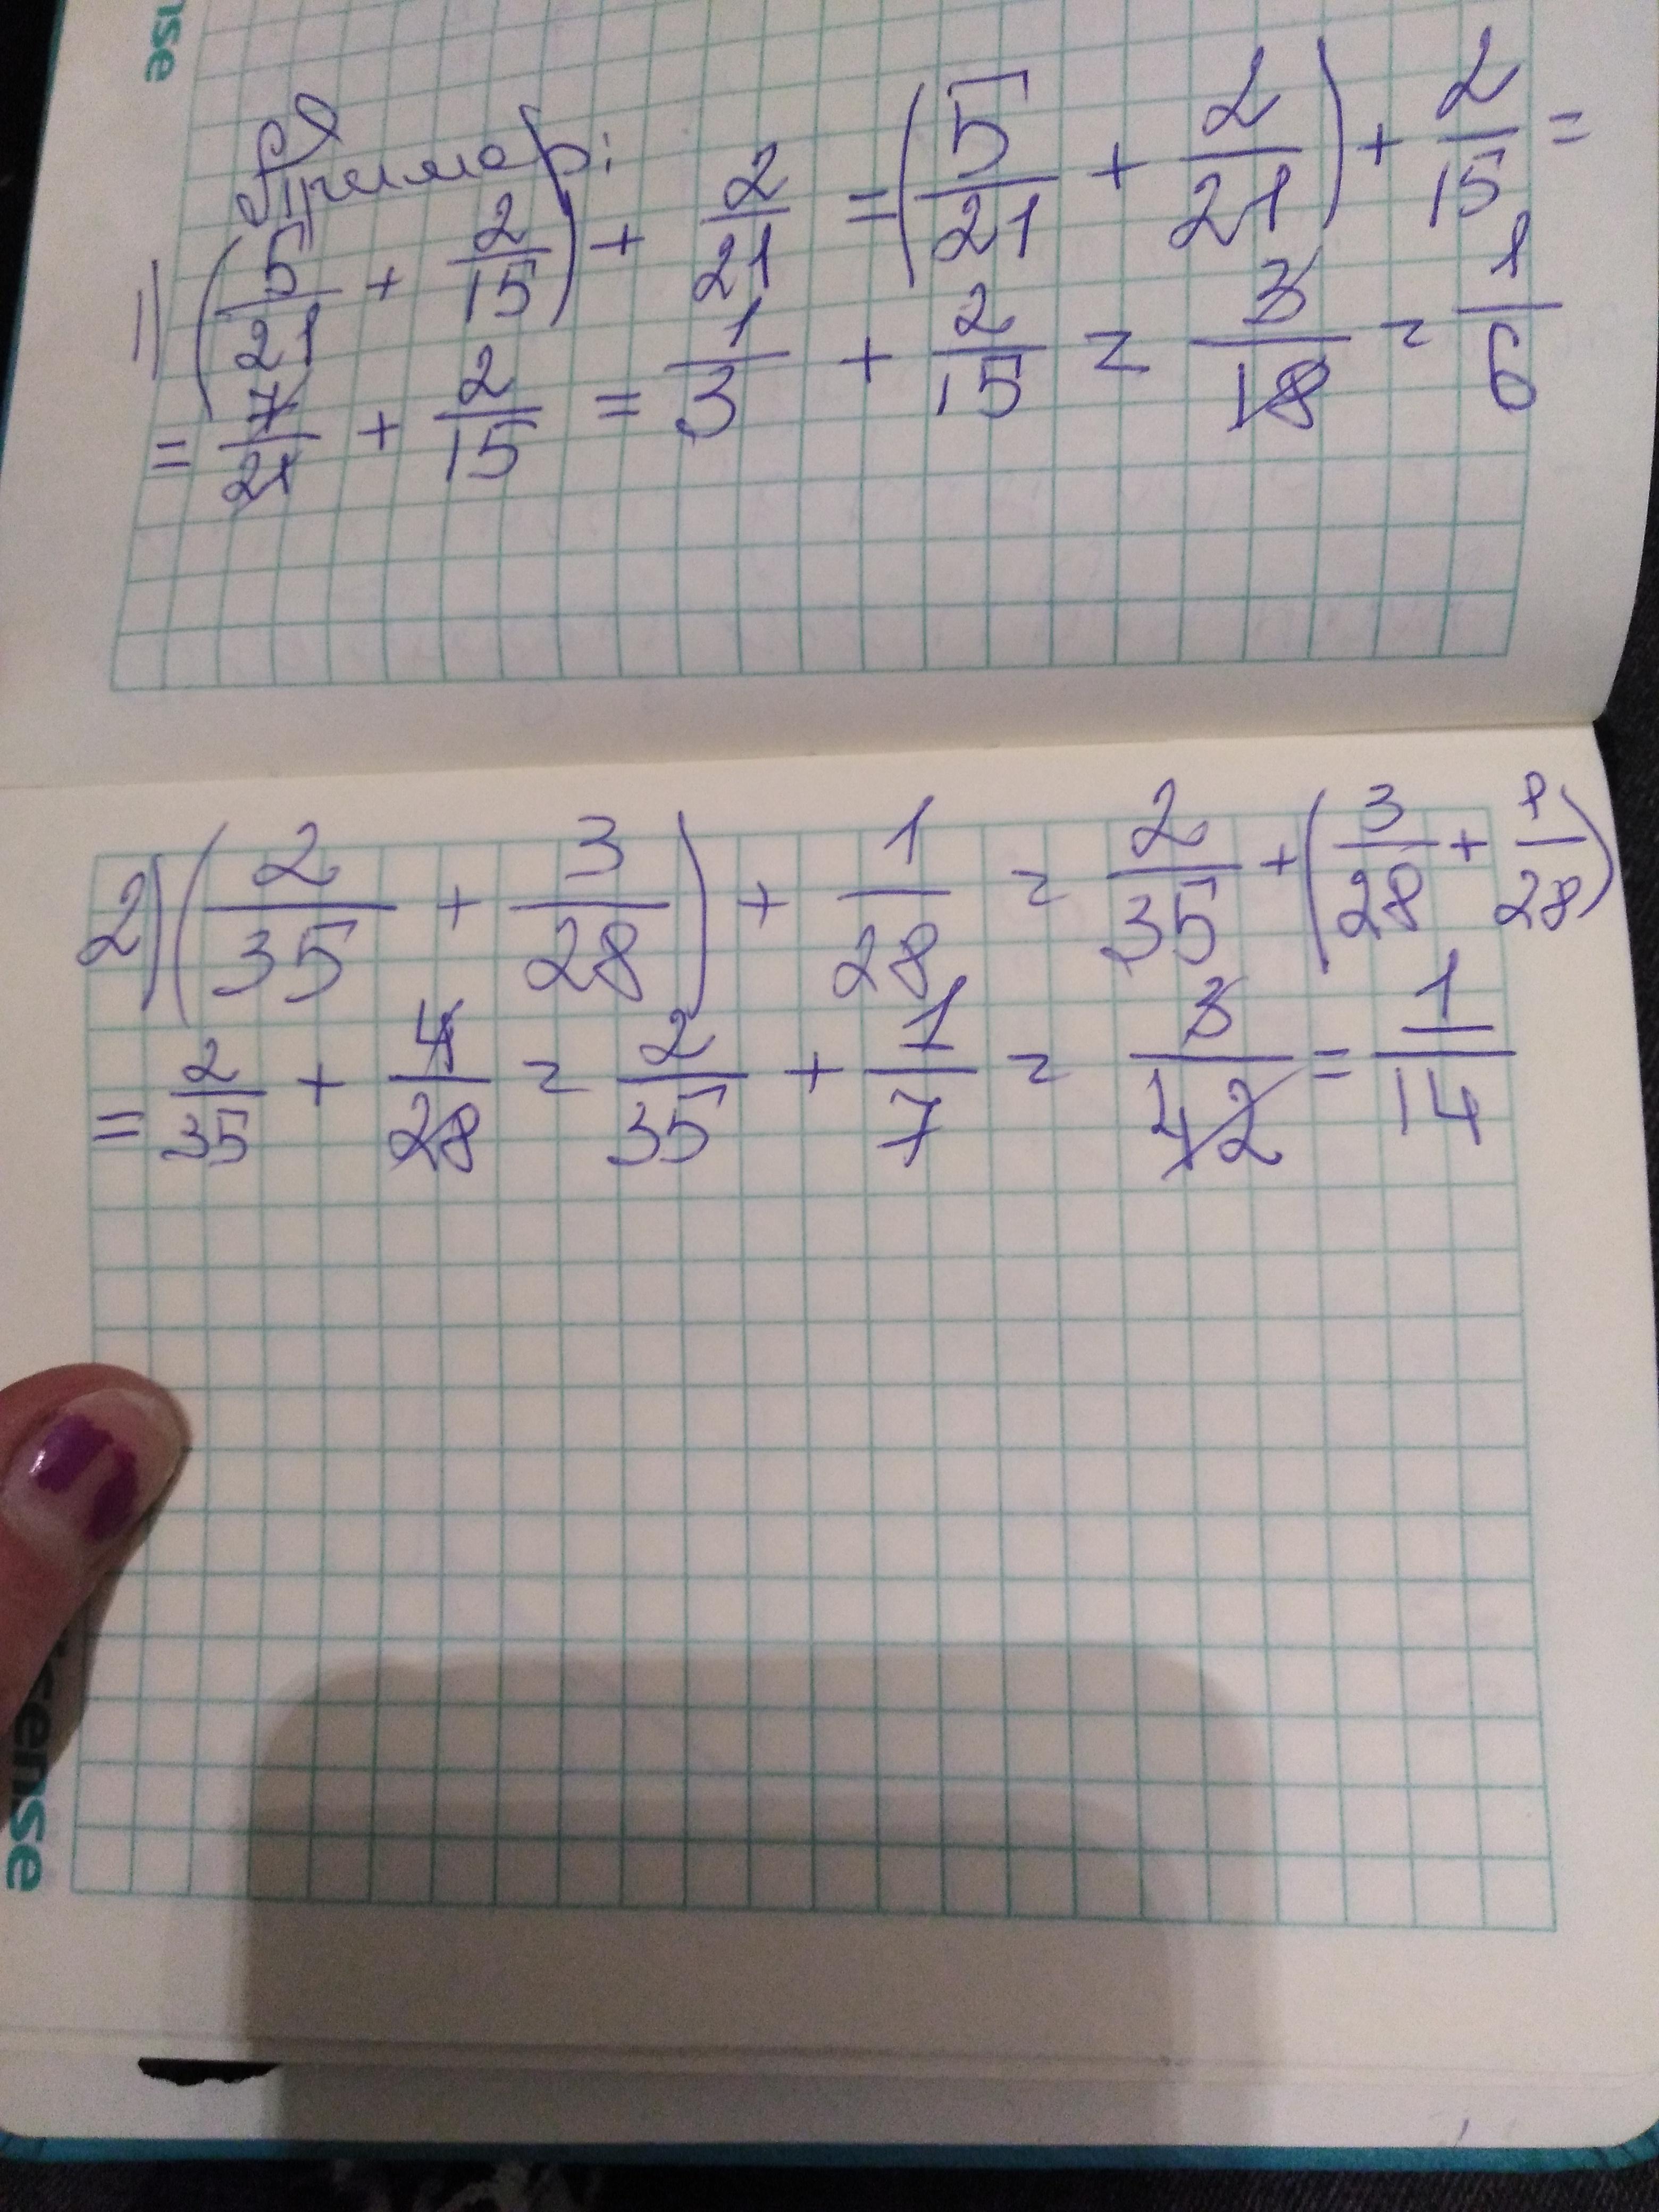 nse
Пример:
1) (5/21 + 2/15) + 2/21 = (5/21 + 2/21) + 2/15 =
= 7/21 + 2/15 = 1/3 + 2/15 = 3/18 = 1/6
2) (2/35 + 3/28) + 1/28 = 2/35 + (3/28 + 1/28)
= 2/35 + 4/28 = 2/35 + 1/7 = 3/42 = 1/14
sense